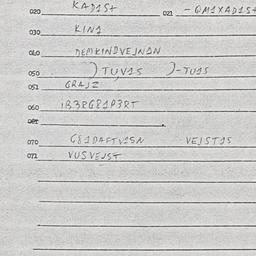 020 KAD1S+ 021 -QM1XAD1S+
030 KIN1
040 DEMKINDVEJNAN
050 )TUV1S )-TU1S
051 GRAJZ
060 1B3RG81P3RT
070 G81DAFTV1SN VEJST1S
071 VUSVEJST